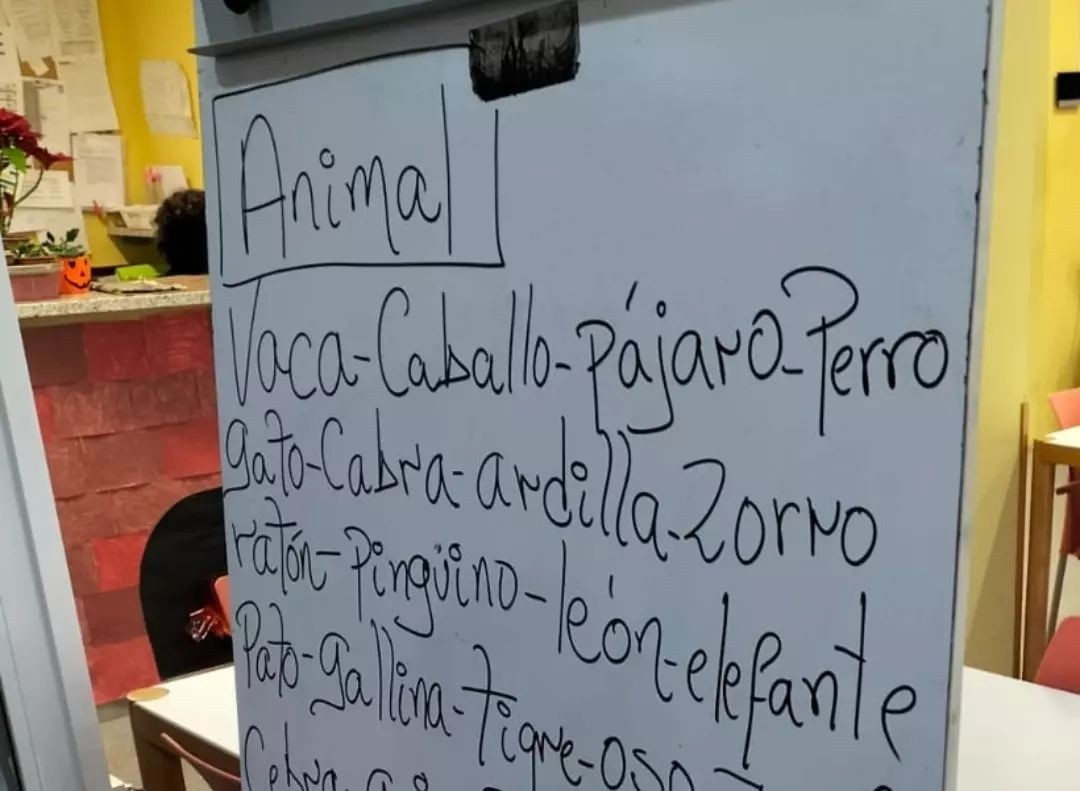 Animal
Vaca-Caballo-Pájaro-Perro
gato-Cabra-ardilla-Zorro
ratón-Pingüino-león-elefante
Pato-gallina-tigre-oso
Cebra-